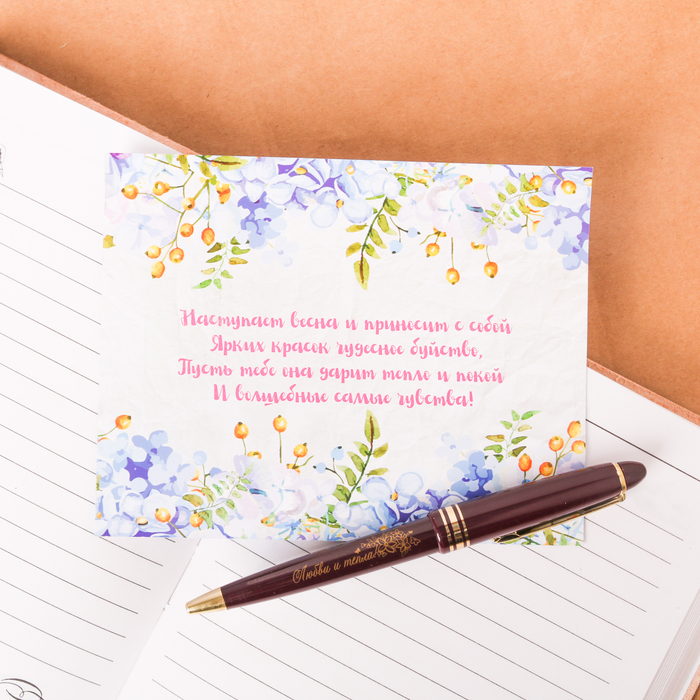 Наступает весна и приносит с собой
Ярких красок чудесное буйство,
Пусть тебе она дарит тепло и покой
И волшебные самые чувства!
Любви и тепла!